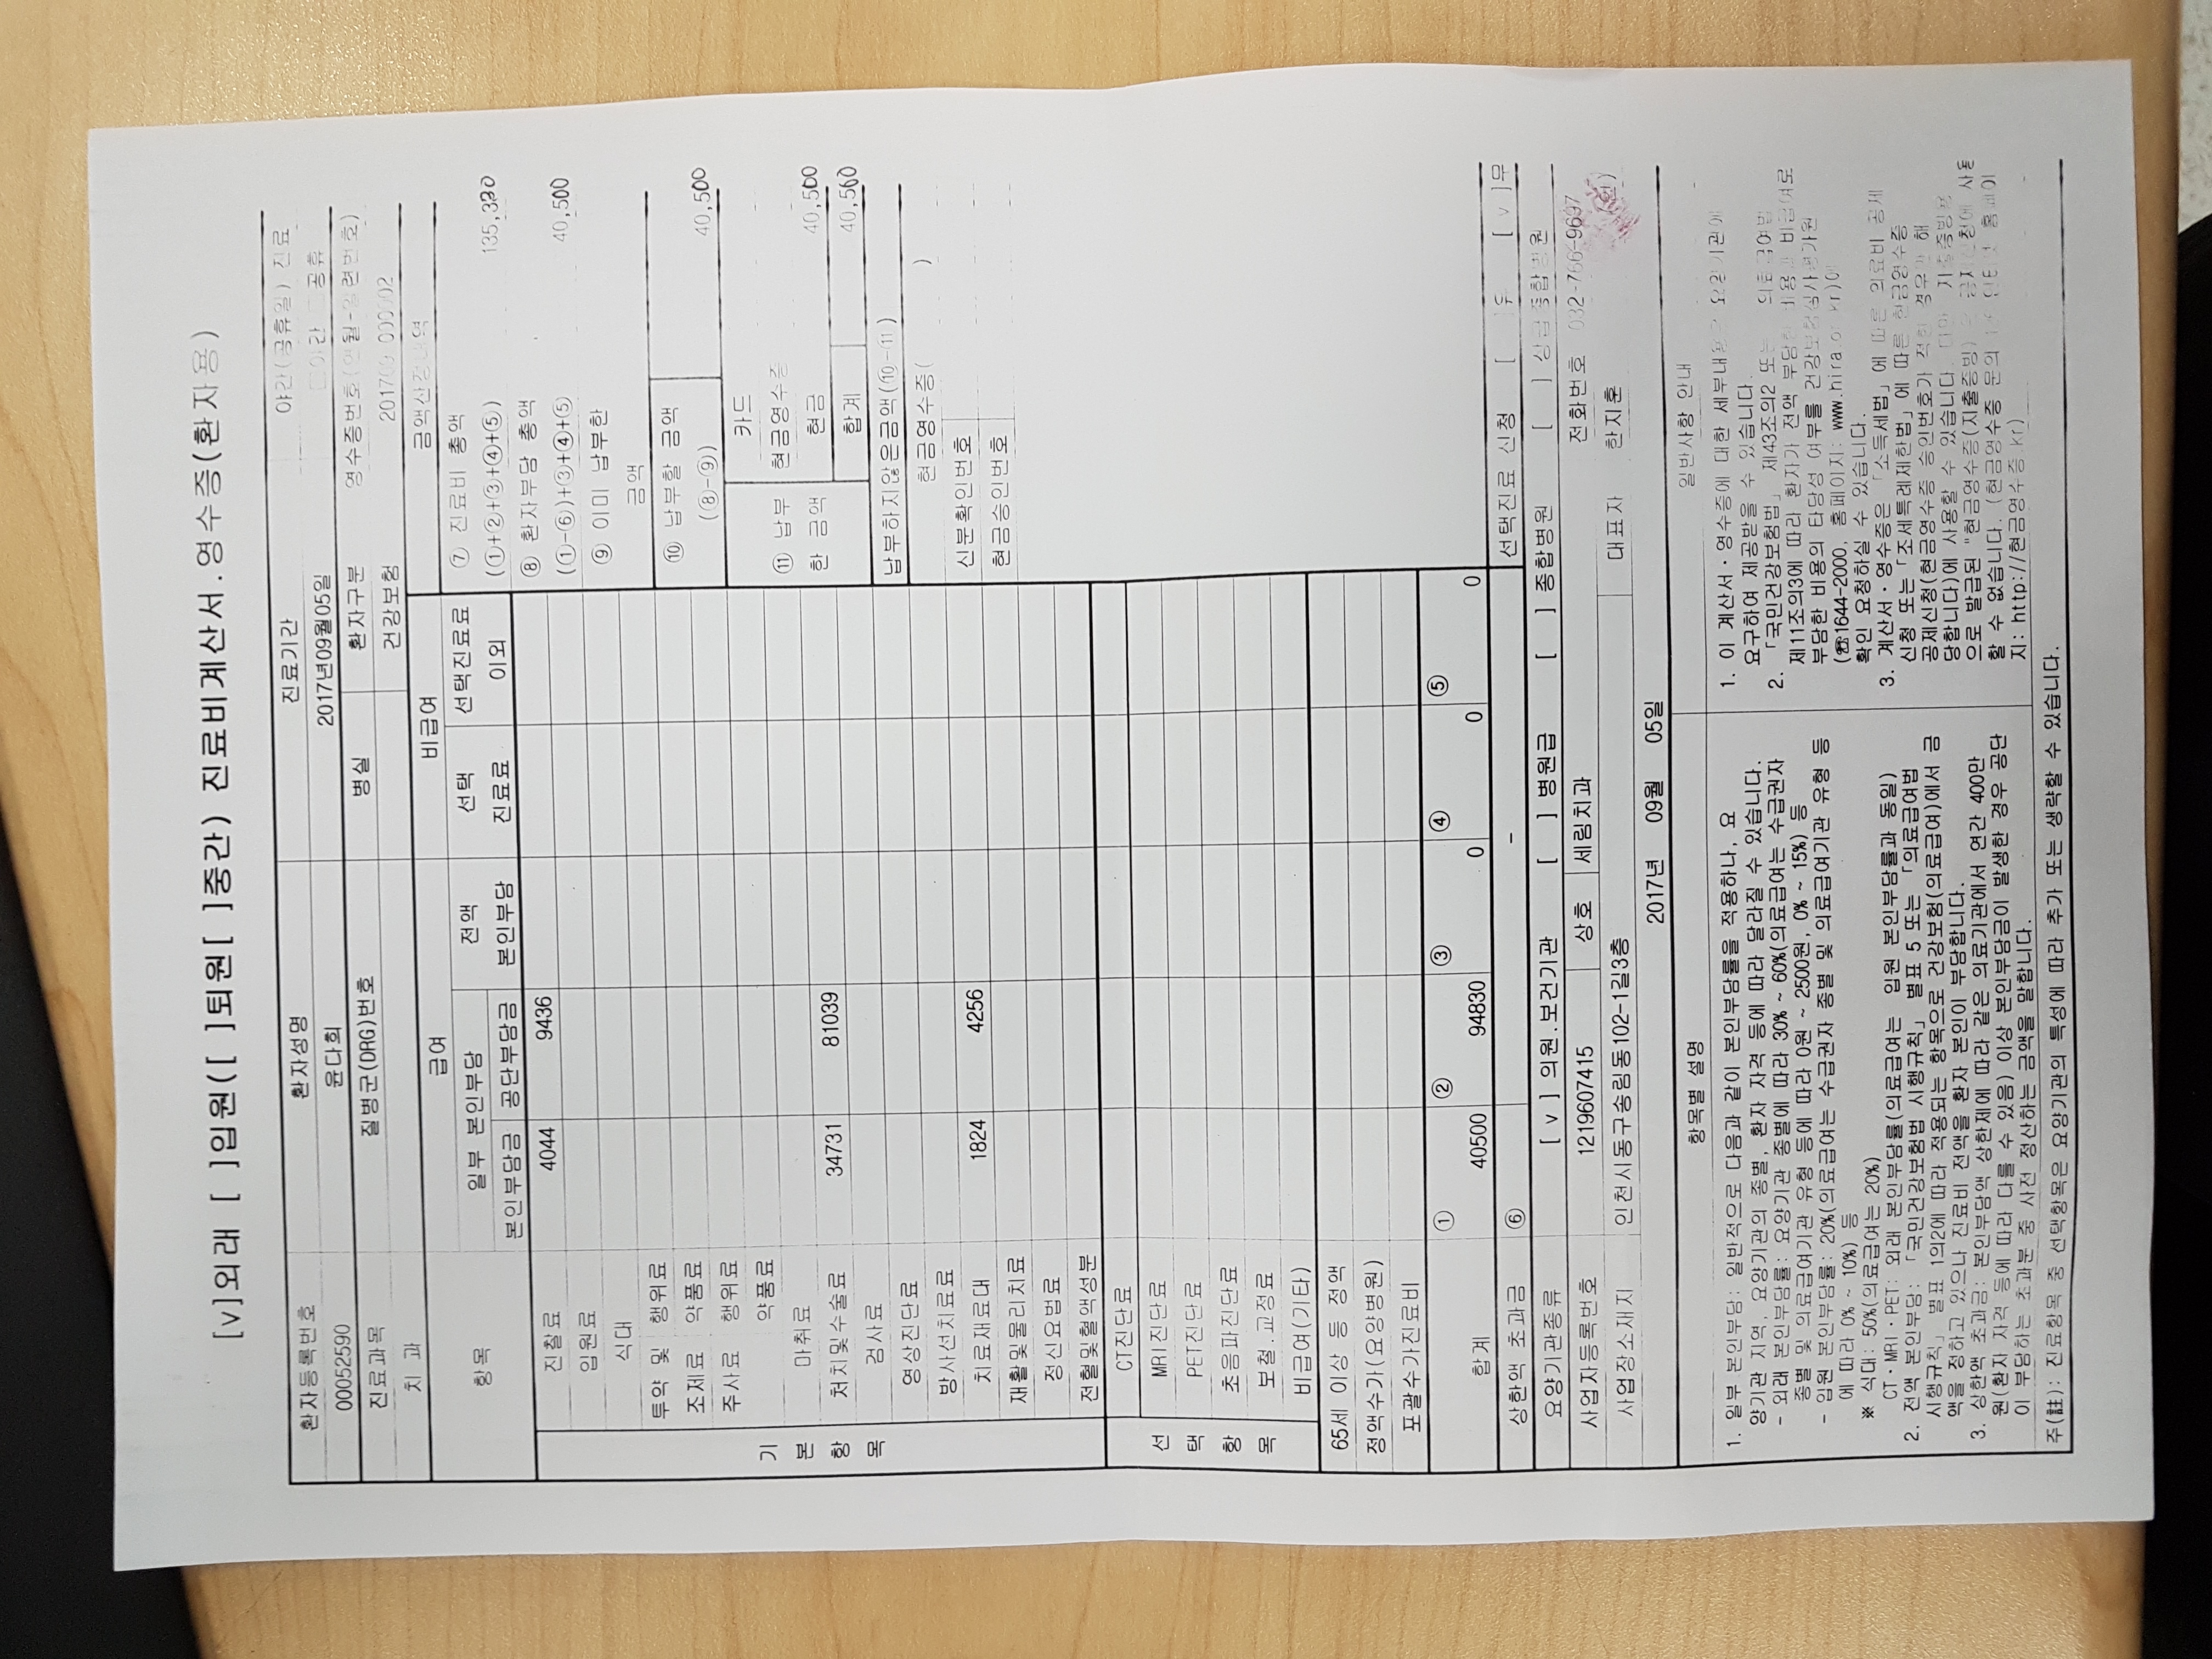 [v]외래 [ ]입원([ ]퇴원[ ]중간) 진료비계산서.영수증(환자용)
환자등록번호 환자성명 진료기간 야간(공휴일) 진료
00052590 윤다회 2017년09월05일 야간 공휴
진료과목 질병군(DRG)번호 병실 환자구분 영수증번호(연월-일련번호)
치 과 건강보험
항목 급여 비급여 금액산정내역
일부 본인부담 전액 본인부담 선택 진료료 선택진료료 이외
본인부담금 공단부담금
기본항목
진찰료 4044 9436
입원료
식대
투약 및 조제료 행위료
약품료
주사료 행위료
약품료
마취료
처치및수술료 34731 81039
검사료
영상진단료
방사선치료료
치료재료대 1824 4256
재활및물리치료
정신요법료
전혈및혈액성분
선택항목
CT진단료
MRI진단료
PET진단료
초음파진단료
보철.교정료
비급여(기타)
65세 이상 등 정액
정액수가(요양병원)
포괄수가진료비
합계 ① 40500 ② 94830 ③ 0 ④ 0 ⑤ 0
상한액 초과금 ⑥ - 선택진료 신청 [ ]유 [ v ]무
⑦ 진료비 총액
(①+②+③+④+⑤) 135,330
⑧ 환자부담 총액
(①-⑥)+③+④+⑤ 40,500
⑨ 이미 납부한
금액
⑩ 납부할 금액
(⑧-⑨) 40,500
⑪ 납부
한 금액
카드
현금영수증
현금 40,500
합계
납부하지않은금액(⑩-⑪)
현금영수증( )
신분확인번호
현금승인번호
요양기관종류 [ v ] 의원.보건기관 [ ] 병원급 [ ] 종합병원 [ ] 상급종합병원
사업자등록번호 1219607415 상호 세림치과 전화번호
사업장소재지 인천시동구송림동102-1길3층 대표자 한지훈
2017년 09월 05일
항목별 설명
1. 일부 본인부담: 일반적으로 다음과 같이 본인부담률을 적용하나, 요
양기관 지역, 요양기관의 종별, 환자 자격 등에 따라 달라질 수 있습니다.
- 외래 본인부담률: 요양기관 종별에 따라 30% ~ 60%(의료급여는 수급권자
종별 및 의료급여기관 유형 등에 따라 0원 ~ 2500원, 0% ~ 15%) 등
- 입원 본인부담률: 20%(의료급여는 수급권자 종별 및 의료급여기관 유형 등
에 따라 0% ~ 10%) 등
※ 식대: 50%(의료급여는 20%)
CT·MRI·PET: 외래 본인부담률(의료급여는 입원 본인부담률과 동일)
2. 전액 본인부담: 「국민건강보험법 시행규칙」 별표 5 또는 「의료급여법
시행규칙」 별표 1의2에 따라 적용되는 항목으로 건강보험(의료급여)에서 금
액을 정하고 있으나 진료비 전액을 환자 본인이 부담합니다.
3. 상한액 초과금: 본인부담액 상한제에 따라 같은 의료기관에서 연간 400만
원(환자 자격 등에 따라 다를 수 있음) 이상 본인부담금이 발생한 경우 공단
이 부담하는 초과분 중 사전 정산하는 금액을 말합니다.
일반사항 안내
1. 이 계산서·영수증에 대한 세부내용은 요양기관에
요구하여 제공받을 수 있습니다.
2. 「국민건강보험법」 제43조의2 또는 의료급여법
제11조의3에 따라 환자가 전액 부담한 비용과 비급여로
부담한 비용의 타당성 여부를 건강보험심사평가원
(☎1644-2000, 홈페이지: www.hira.or.kr)에
확인 요청하실 수 있습니다.
3. 계산서·영수증은 「소득세법」에 따른 의료비 공제
신청 또는 「조세특례제한법」에 따른 현금영수증
공제신청(현금영수증 승인번호가 적힌 경우만 해
당합니다)에 사용할 수 있습니다. 다만, 지출증빙용
으로 발급된 "현금영수증(지출증빙)"은 공제신청에 사용
할 수 없습니다. (현금영수증 문의 126 인터넷 홈페이
지: http://현금영수증.kr)
주(註): 진료항목 중 선택항목은 요양기관의 특성에 따라 추가 또는 생략할 수 있습니다.